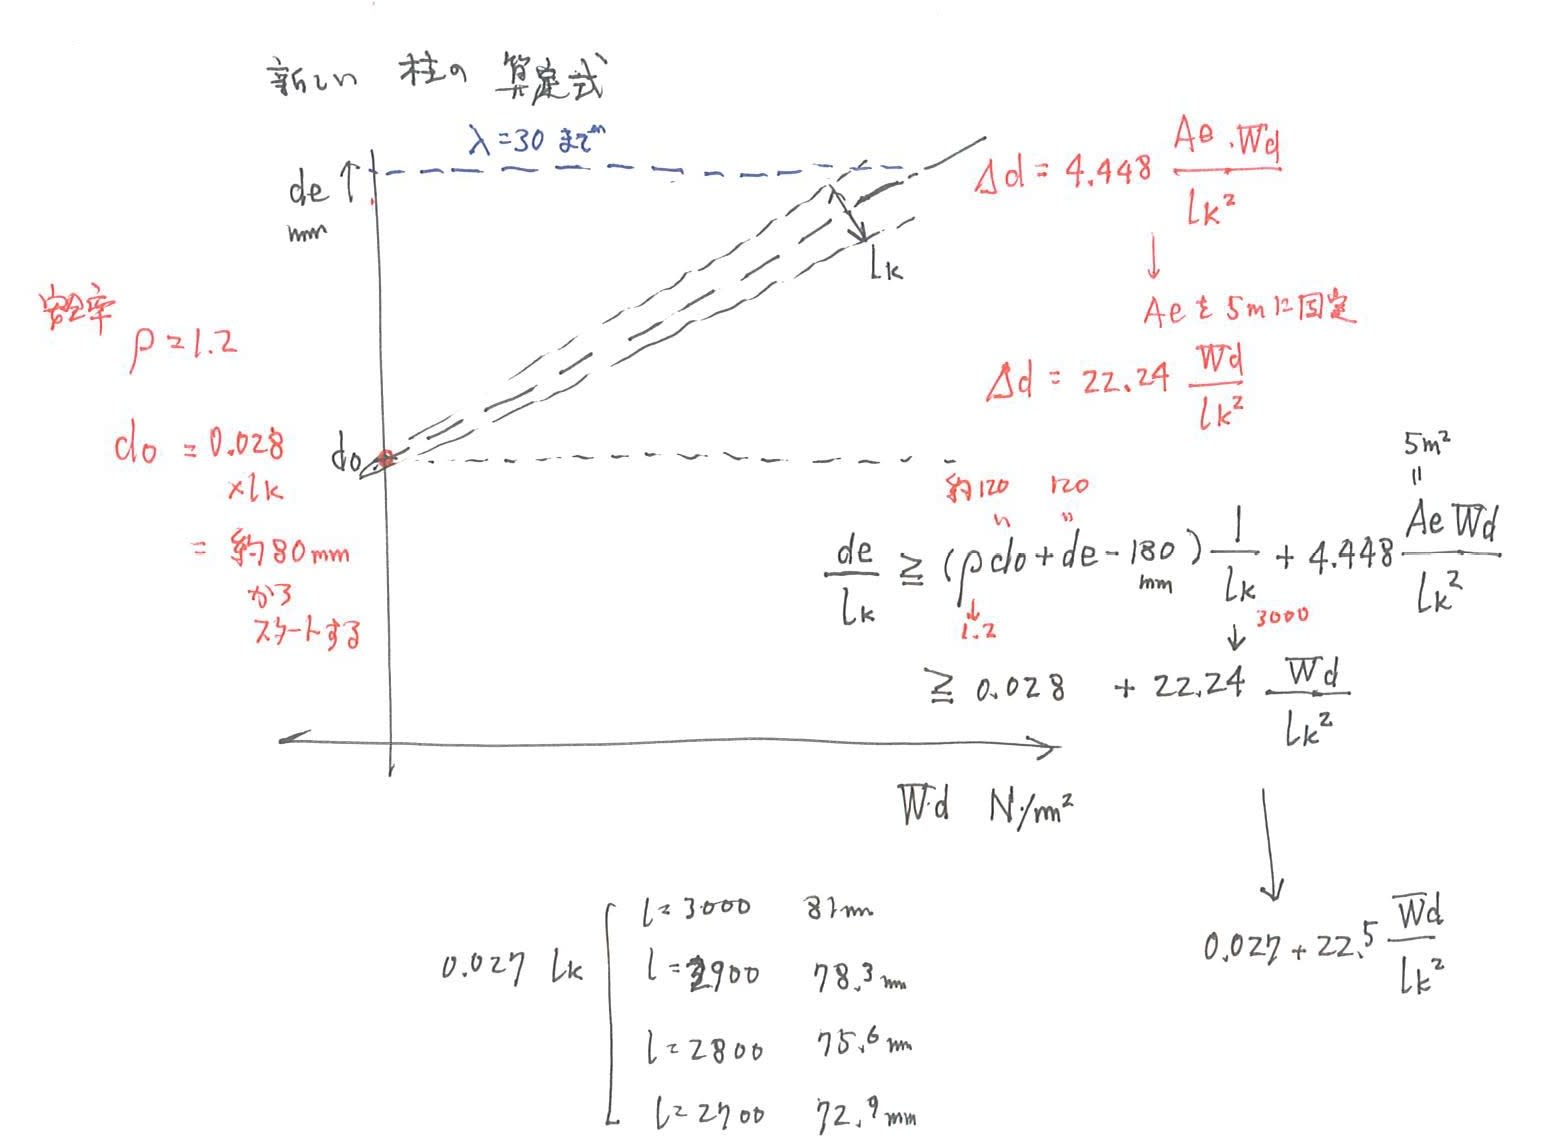 新しい 柱の 算定式
λ=30 まで
de ↑
mm
Δd = 4.448 Ae・Wd / lk²
↓
Aeを5mに固定
Δd = 22.24 Wd / lk²
lk
安全率
ρ=1.2
do = 0.028
×lk
= 約80mm
から
スタートする
do
5m²
〃
約120 120
〃 〃
de / lk ≧ (ρdo + de - 180) 1 / lk + 4.448 Ae Wd / lk²
mm
↓ 1.2
↓ 3000
≧ 0.028 + 22.24 Wd / lk²
Wd N/m²
↓
0.027 + 22.5 Wd / lk²
0.027 lk
l=3000 81mm
l=2900 78.3mm
l=2800 75.6mm
l=2700 72.9mm